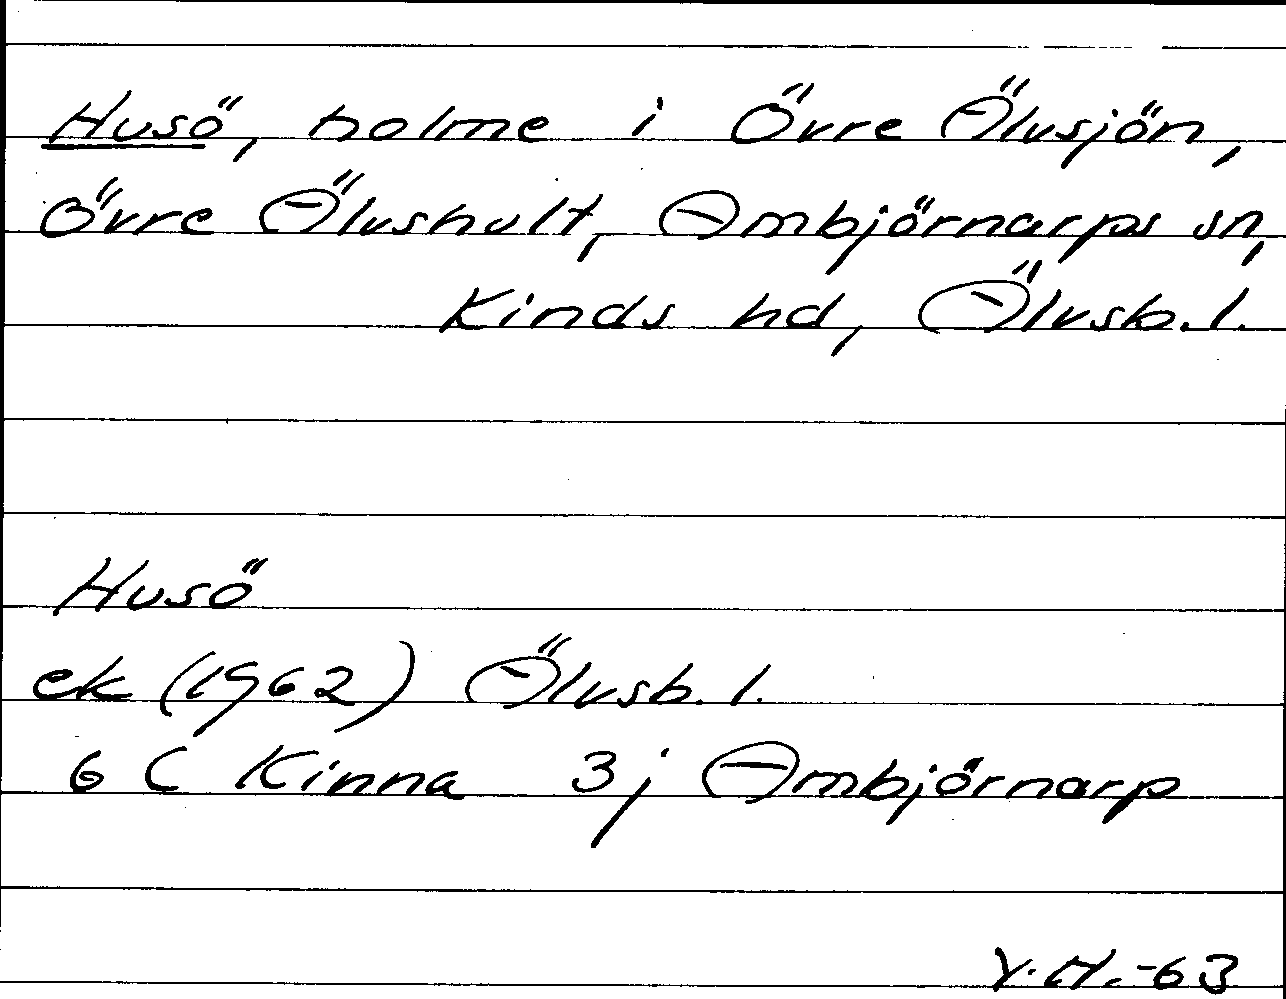 Husö, holme i Övre Älvsjön,
Övre Älvshult, Ambjörnarps sn,
Kinds hd, Älvsb. l.
Husö
ek (1962) Älvsb. l.
6 C Kinna 3j Ambjörnarp
Y.H.-63